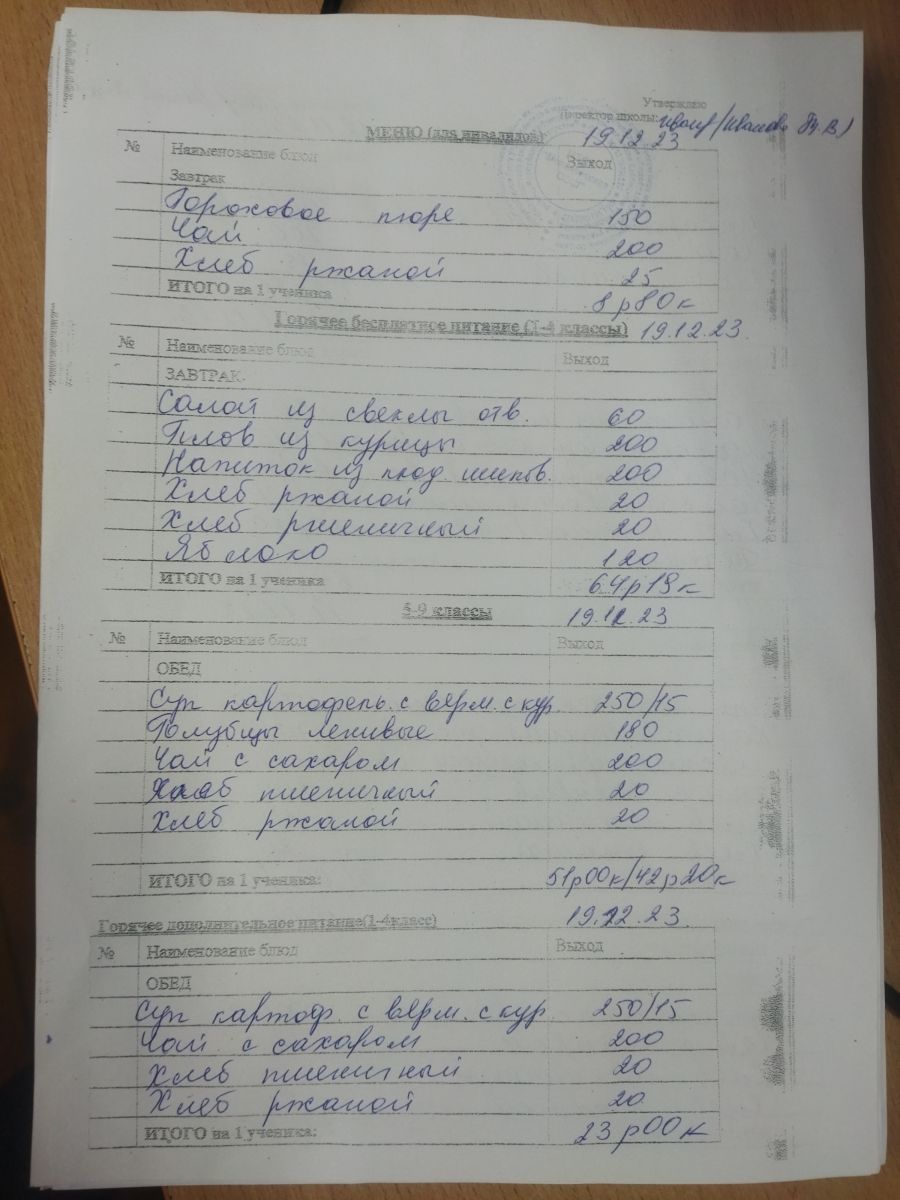 Утверждаю
Директор школы:
МЕНЮ (для инвалидов) 19.12.23
№ Наименование блюд Выход
Завтрак
Гороховое пюре 150
Чай 200
Хлеб ржаной 25
ИТОГО на 1 ученика 8р80к
Горячее бесплатное питание (1-4 классы) 19.12.23
№ Наименование блюд Выход
ЗАВТРАК
Салат из свеклы отв. 60
Плов из курицы 200
Напиток из плод. шипов. 200
Хлеб ржаной 20
Хлеб пшеничный 20
Яблоко 120
ИТОГО на 1 ученика 64р19к
5-9 классы 19.12.23
№ Наименование блюд Выход
ОБЕД
Суп картофель. с верм. с кур 250/15
Голубцы ленивые 180
Чай с сахаром 200
Хлеб пшеничный 20
Хлеб ржаной 20
ИТОГО на 1 ученика: 51р00к/42р20к
Горячее дополнительное питание(1-4класс) 19.12.23
№ Наименование блюд Выход
ОБЕД
Суп картоф. с верм. с кур 250/15
Чай с сахаром 200
Хлеб пшеничный 20
Хлеб ржаной 20
ИТОГО на 1 ученика: 23р00к